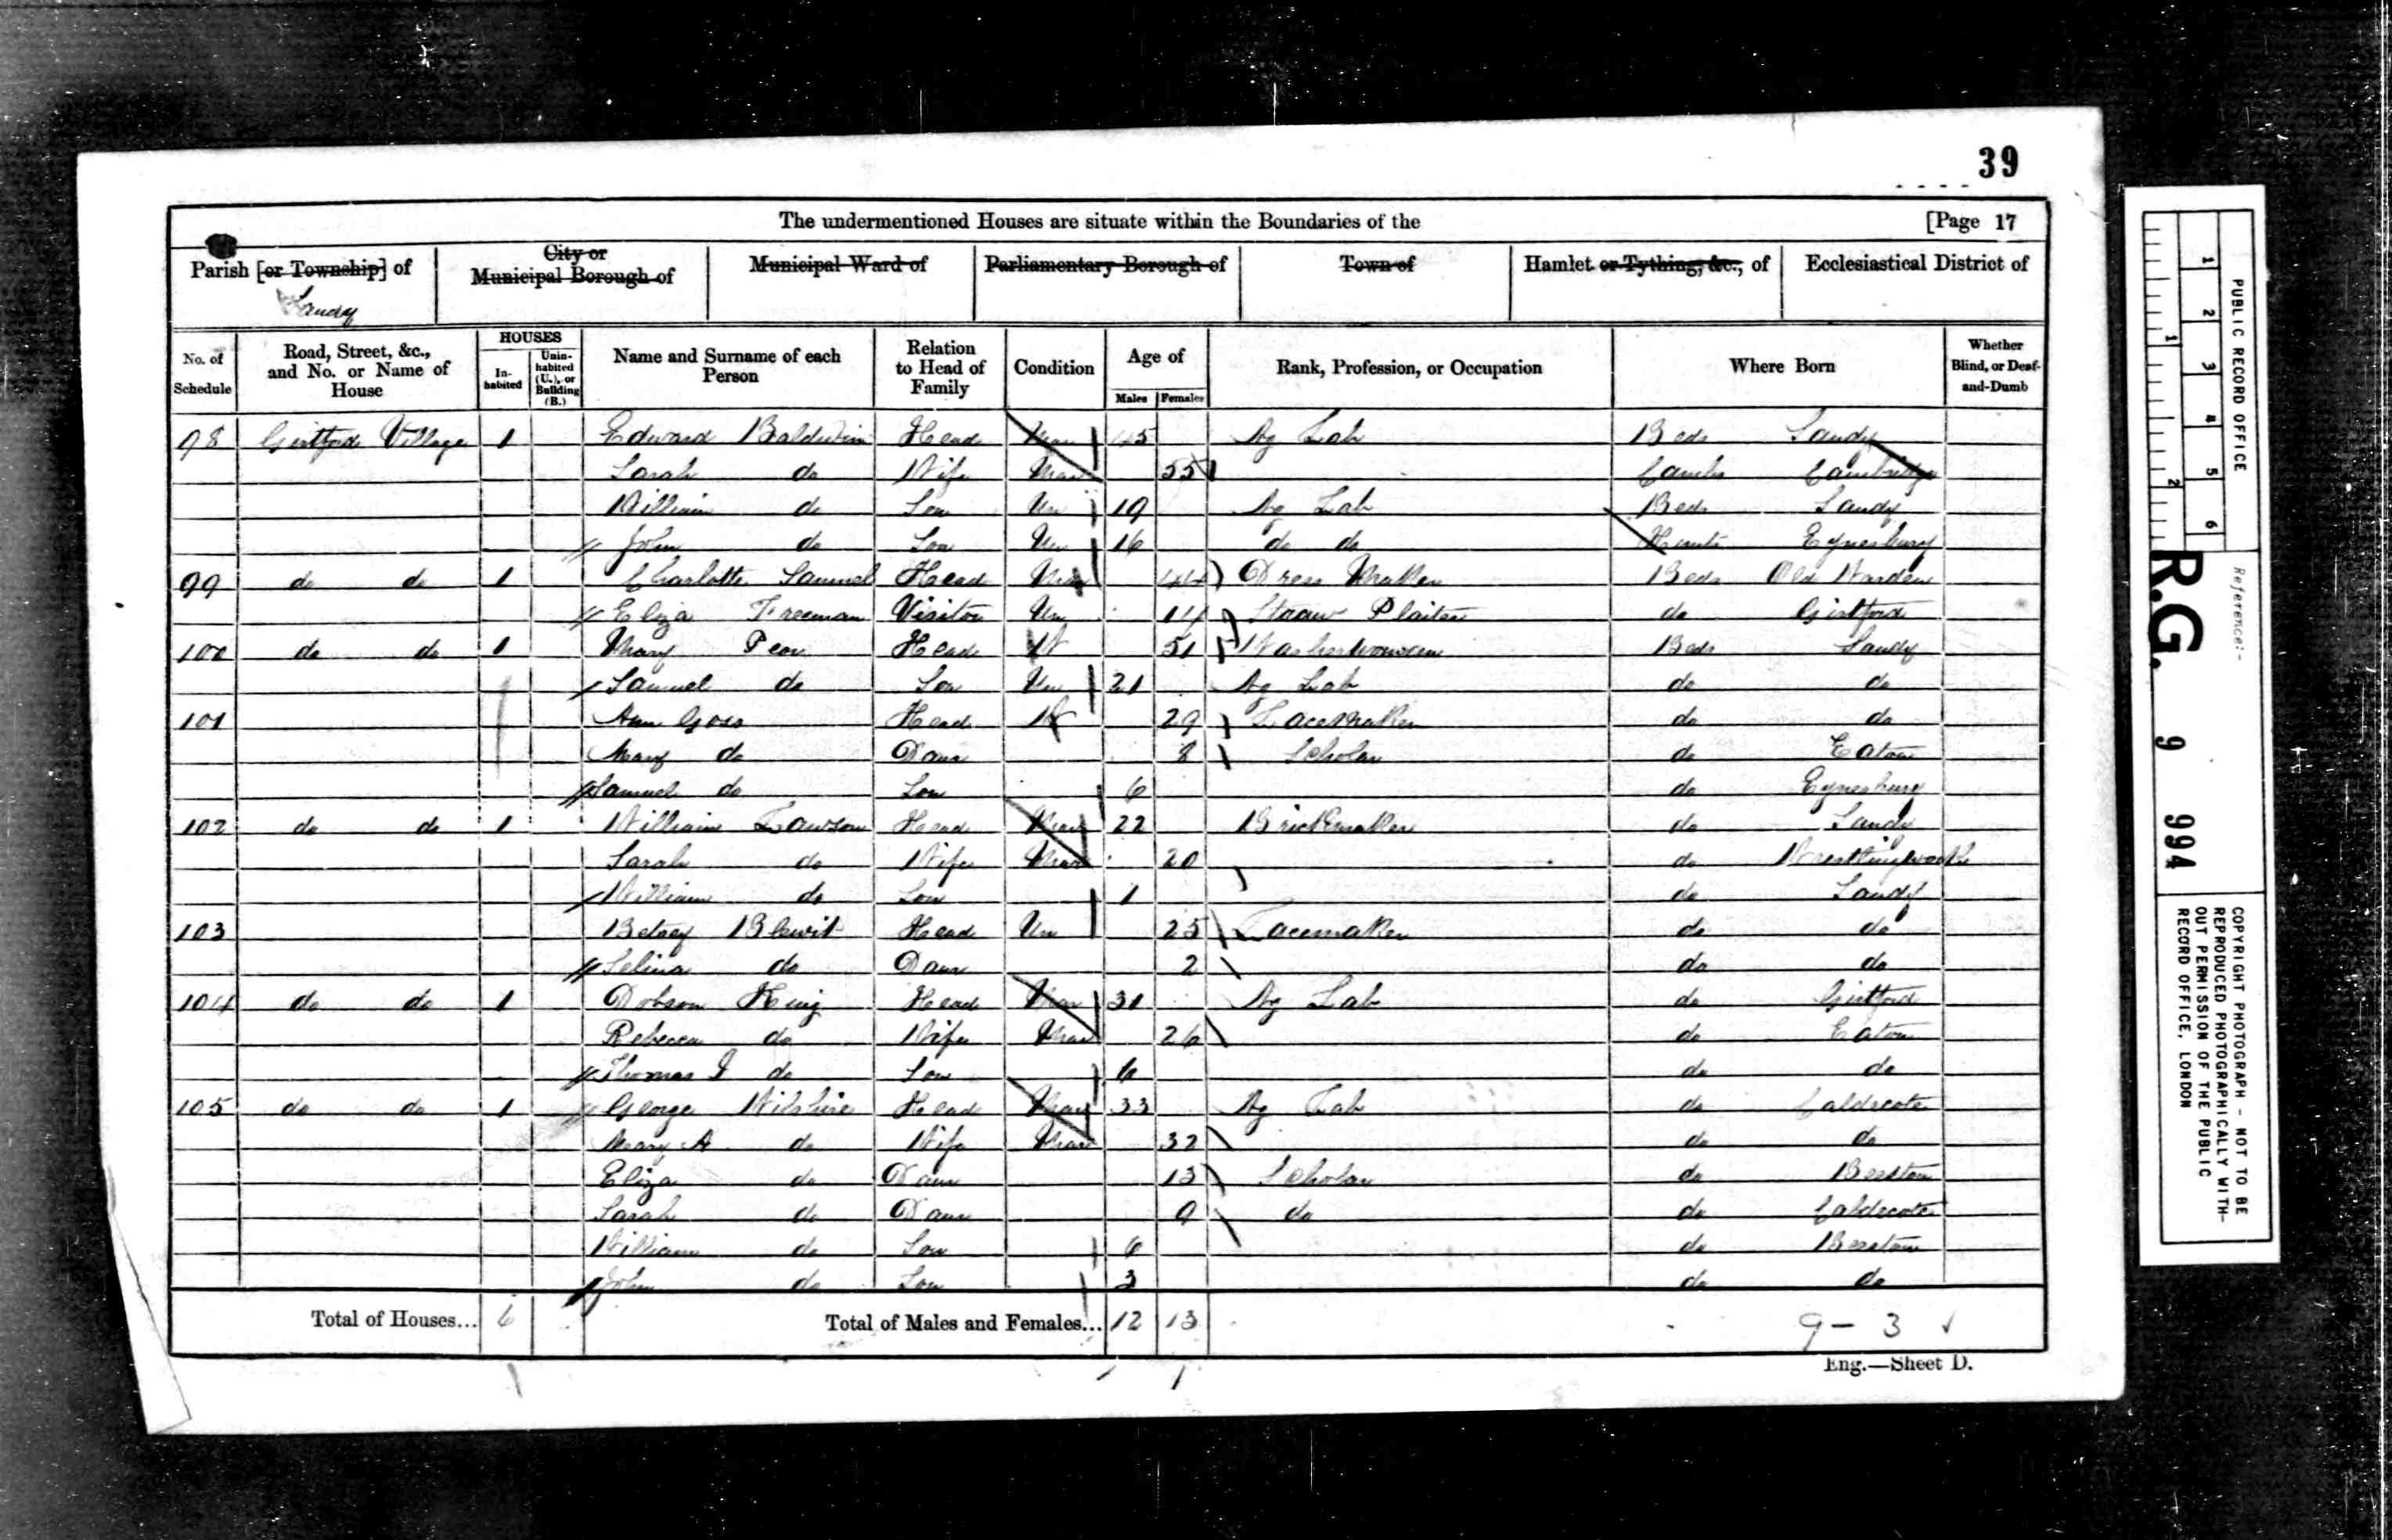 39
The undermentioned Houses are situate within the Boundaries of the [Page 17
Parish [or Township] of City or Municipal Borough of Municipal Ward of Parliamentary Borough of Town of Hamlet or Tything, &c., of Ecclesiastical District of
Sandy
No. of Schedule Road, Street, &c., and No. or Name of House HOUSES Inhabited Uninhabited (U.), or Building (B.) Name and Surname of each Person Relation to Head of Family Condition Age of Males Females Rank, Profession, or Occupation Where Born Whether Blind, or Deaf-and-Dumb
98 Girtford Village 1 Edward Baldwin Head Mar 45 Ag Lab Beds Sandy
Sarah do Wife Mar 55 Cambs Cambridge
William do Son Un 19 Ag Lab Beds Sandy
John do Son Un 16 do do Hunts Eynesbury
99 do do 1 Charlotte Samuel Head 44 Dress Maker Beds Old Warden
Eliza Freeman Visitor Un 14 Straw Plaiter do Girtford
100 do do 1 Mary Peor Head W 51 Washerwoman Beds Sandy
Samuel do Son Un 21 Ag Lab do do
101 Ann Goss Head W 29 Lacemaker do do
Mary do Daur 8 Scholar do Eaton
Samuel do Son 6 do Eynesbury
102 do do 1 William Lawson Head Mar 22 Brickmaker do Sandy
Sarah do Wife Mar 20 do Wrestlingworth
William do Son 1 do Sandy
103 Betsey Blewit Head Un 25 Lacemaker do do
Selina do Daur 2 do do
104 do do 1 Dobson King Head Mar 31 Ag Lab do Girtford
Rebecca do Wife Mar 26 do Eaton
Thomas J do Son 6 do do
105 do do 1 George Wilshire Head Mar 33 Ag Lab do Caldecote
Mary A do Wife Mar 32 do do
Eliza do Daur 13 Scholar do Beeston
Sarah do Daur 9 do do Caldecote
William do Son 6 do Beeston
John do Son 3 do do
Total of Houses... 6 Total of Males and Females... 12 13 9 - 3
Eng.—Sheet D.
PUBLIC RECORD OFFICE
1 2 3 4 5 6
1 2
Reference:-
R.G. 9 994
COPYRIGHT PHOTOGRAPH - NOT TO BE
REPRODUCED PHOTOGRAPHICALLY WITH-
OUT PERMISSION OF THE PUBLIC
RECORD OFFICE, LONDON